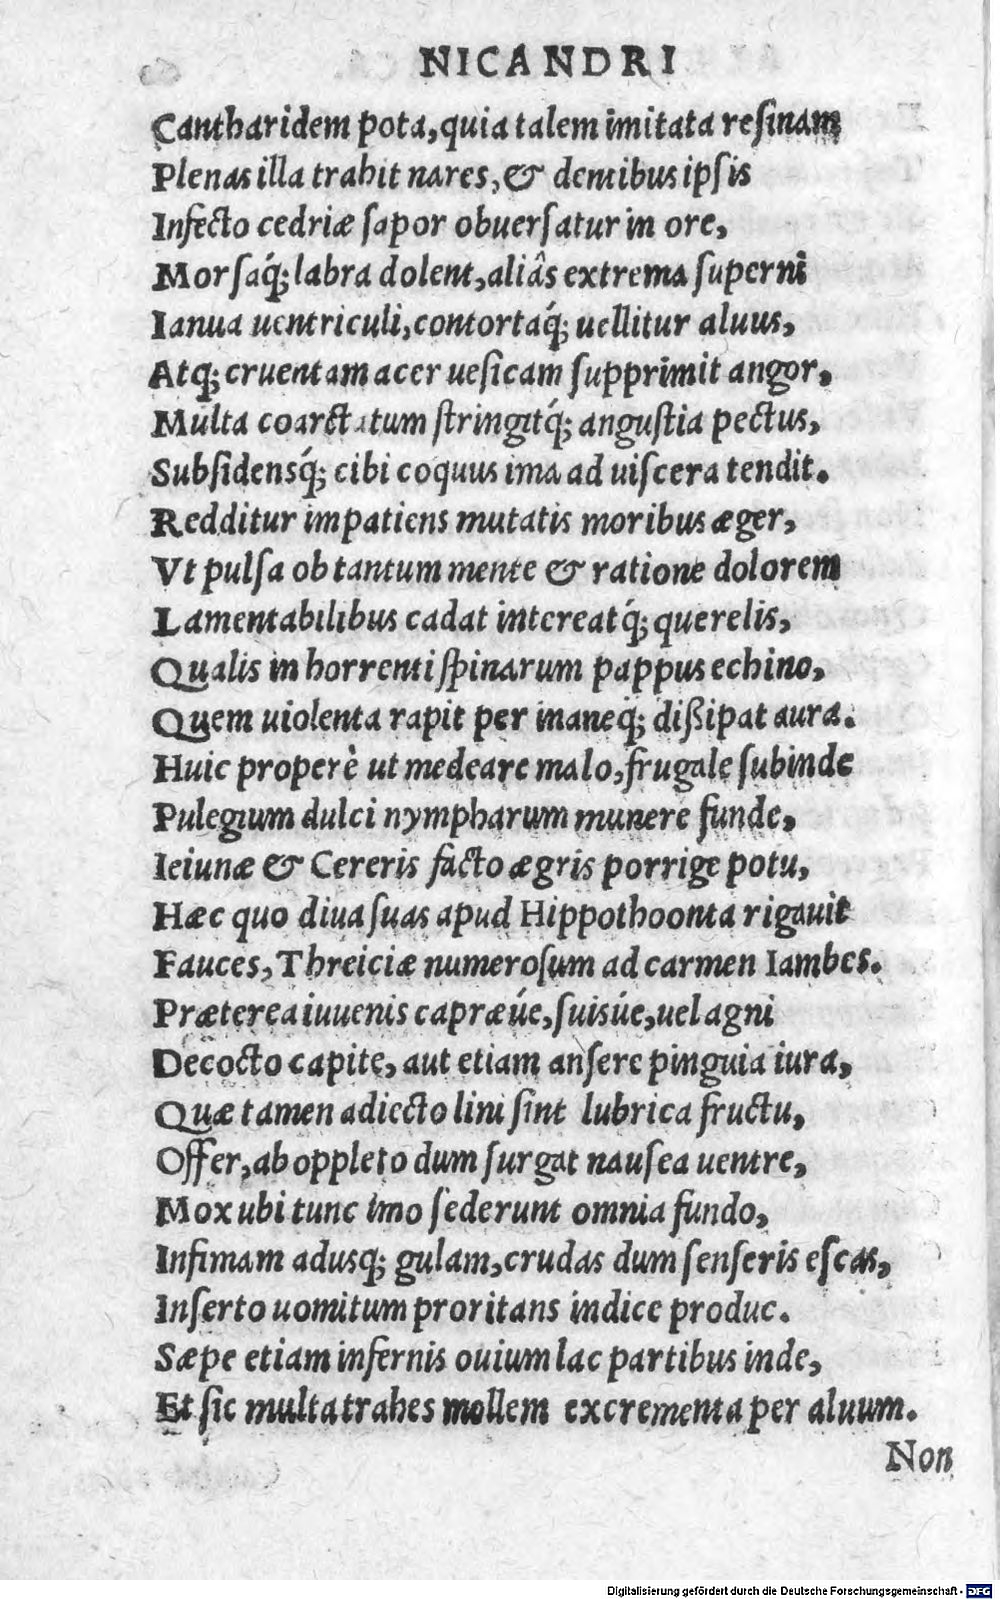 NICANDRI
Cantharidem pota, quia talem imitata reſinam
Plenas illa trahit nares, & dentibus ipſis
Infecto cedriæ ſapor obuerſatur in ore,
Morſaq́; labra dolent, aliâs extrema ſuperni
Ianua uentriculi, contortaq́; uellitur aluus,
Atq; cruentam acer ueſicam ſupprimit angor,
Multa coarctatum ſtringitq́; anguſtia pectus,
Subſidensq́; cibi coquus ima ad uiſcera tendit.
Redditur impatiens mutatis moribus æger,
Vt pulſa ob tantum mente & ratione dolorem
Lamentabilibus cadat intereatq́; querelis,
Qualis in horrenti ſpinarum pappus echino,
Quem uiolenta rapit per inaneq́; diſsipat aura.
Huic properè ut medeare malo, frugale ſubinde
Pulegium dulci nympharum munere funde,
Ieiunæ & Cereris facto ægris porrige potu,
Hæc quo diua ſuas apud Hippothoonta rigauit
Fauces, Threiciæ numeroſum ad carmen Iambes.
Præterea iuuenis capræúe, ſuisúe, uel agni
Decocto capite, aut etiam anſere pinguia iura,
Quæ tamen adiecto lini ſint lubrica fructu,
Offer, ab oppleto dum ſurgat nauſea uentre,
Mox ubi tunc imo ſederunt omnia fundo,
Infimam adusq; gulam, crudas dum ſenſeris eſcas,
Inſerto uomitum proritans indice produc.
Sæpe etiam infernis ouium lac partibus inde,
Et ſic multa trahes mollem excrementa per aluum.
Non
Digitalisierung gefördert durch die Deutsche Forschungsgemeinschaft - DFG